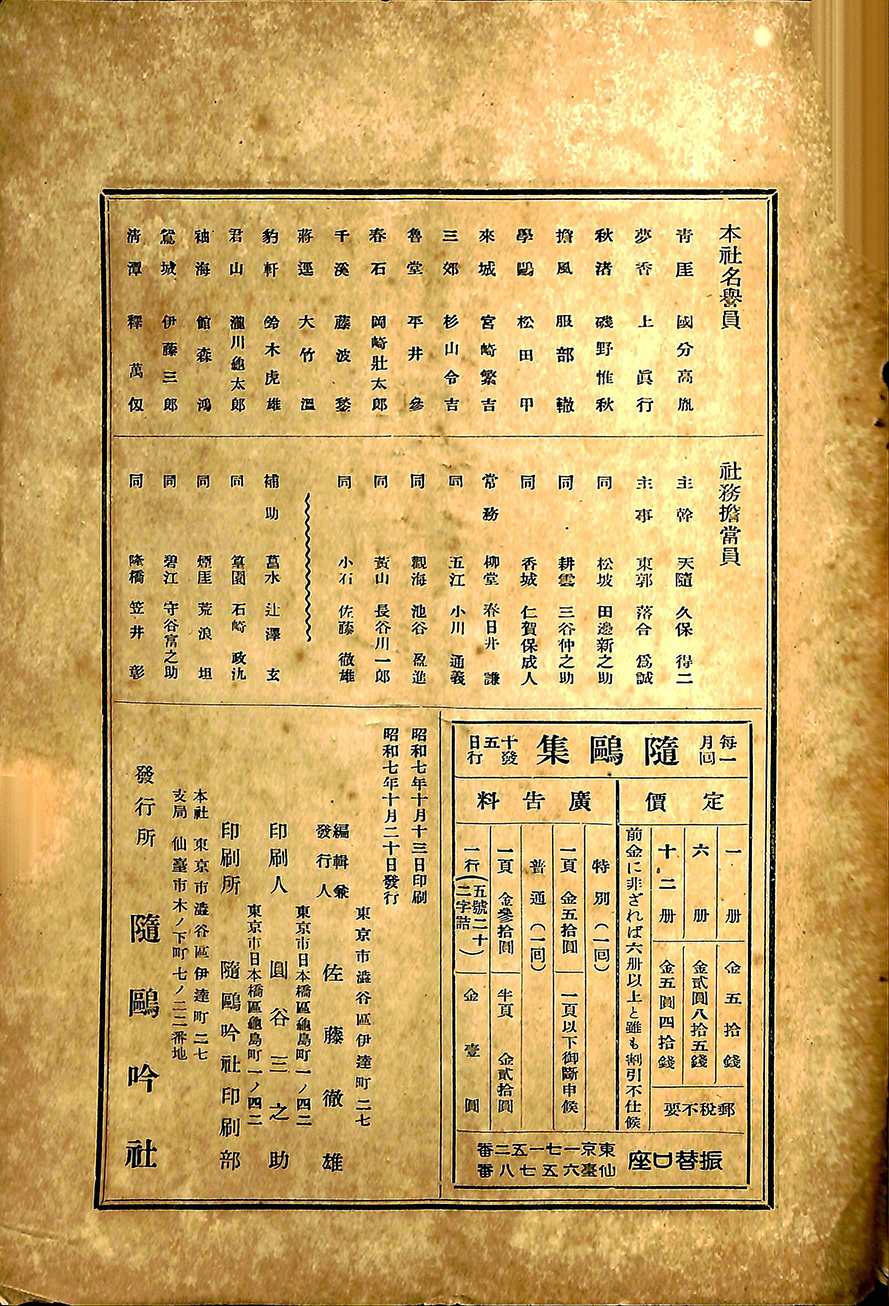 本社名譽員
靑厓 國分高胤
夢香 上眞行
秋渚 磯野惟秋
擔風 服部轍
學鷗 松田甲
來城 宮崎繁吉
三郊 杉山令吉
魯堂 平井參
春石 岡崎壯太郎
千溪 藤波鍫
蔣逕 大竹溫
豹軒 鈴木虎雄
君山 瀧川龜太郎
袖海 館森鴻
鴛城 伊藤三郎
淸潭 釋萬仭
社務擔當員
主幹 天隨 久保得二
主事 東郭 落合爲誠
同 松坡 田邊新之助
同 耕雲 三谷仲之助
同 香城 仁賀保成人
常務 柳堂 春日井謙
同 五江 小川通義
同 觀海 池谷盈進
同 黃山 長谷川一郎
同 小石 佐藤徹雄
補助 菖水 辻澤玄
同 篁園 石崎政氿
同 煙厓 荒浪坦
同 碧江 守谷富之助
同 隆橋 笠井彰
每月一回 隨鷗集 十五日發行
定價
一册 金五拾錢
六册 金貳圓八拾五錢
十二册 金五圓四拾錢
郵稅不要
前金に非ざれば六册以上と雖も割引不仕候
廣告料
特別(一回)
一頁 金五拾圓 一頁以下御斷申候
普通(一回)
一頁 金參拾圓 半頁 金貳拾圓
一行(五號二十二字詰) 金壹圓
振替口座 東京一七一五二番
仙臺六五七八番
昭和七年十月十三日印刷
昭和七年十月二十日發行
東京市澁谷區伊達町二七
編輯兼發行人 佐藤徹雄
東京市日本橋區龜島町一ノ四二
印刷人 圓谷三之助
東京市日本橋區龜島町一ノ四二
印刷所 隨鷗吟社印刷部
本社 東京市澁谷區伊達町二七
支局 仙臺市木ノ下町七ノ二三番地
發行所 隨鷗吟社